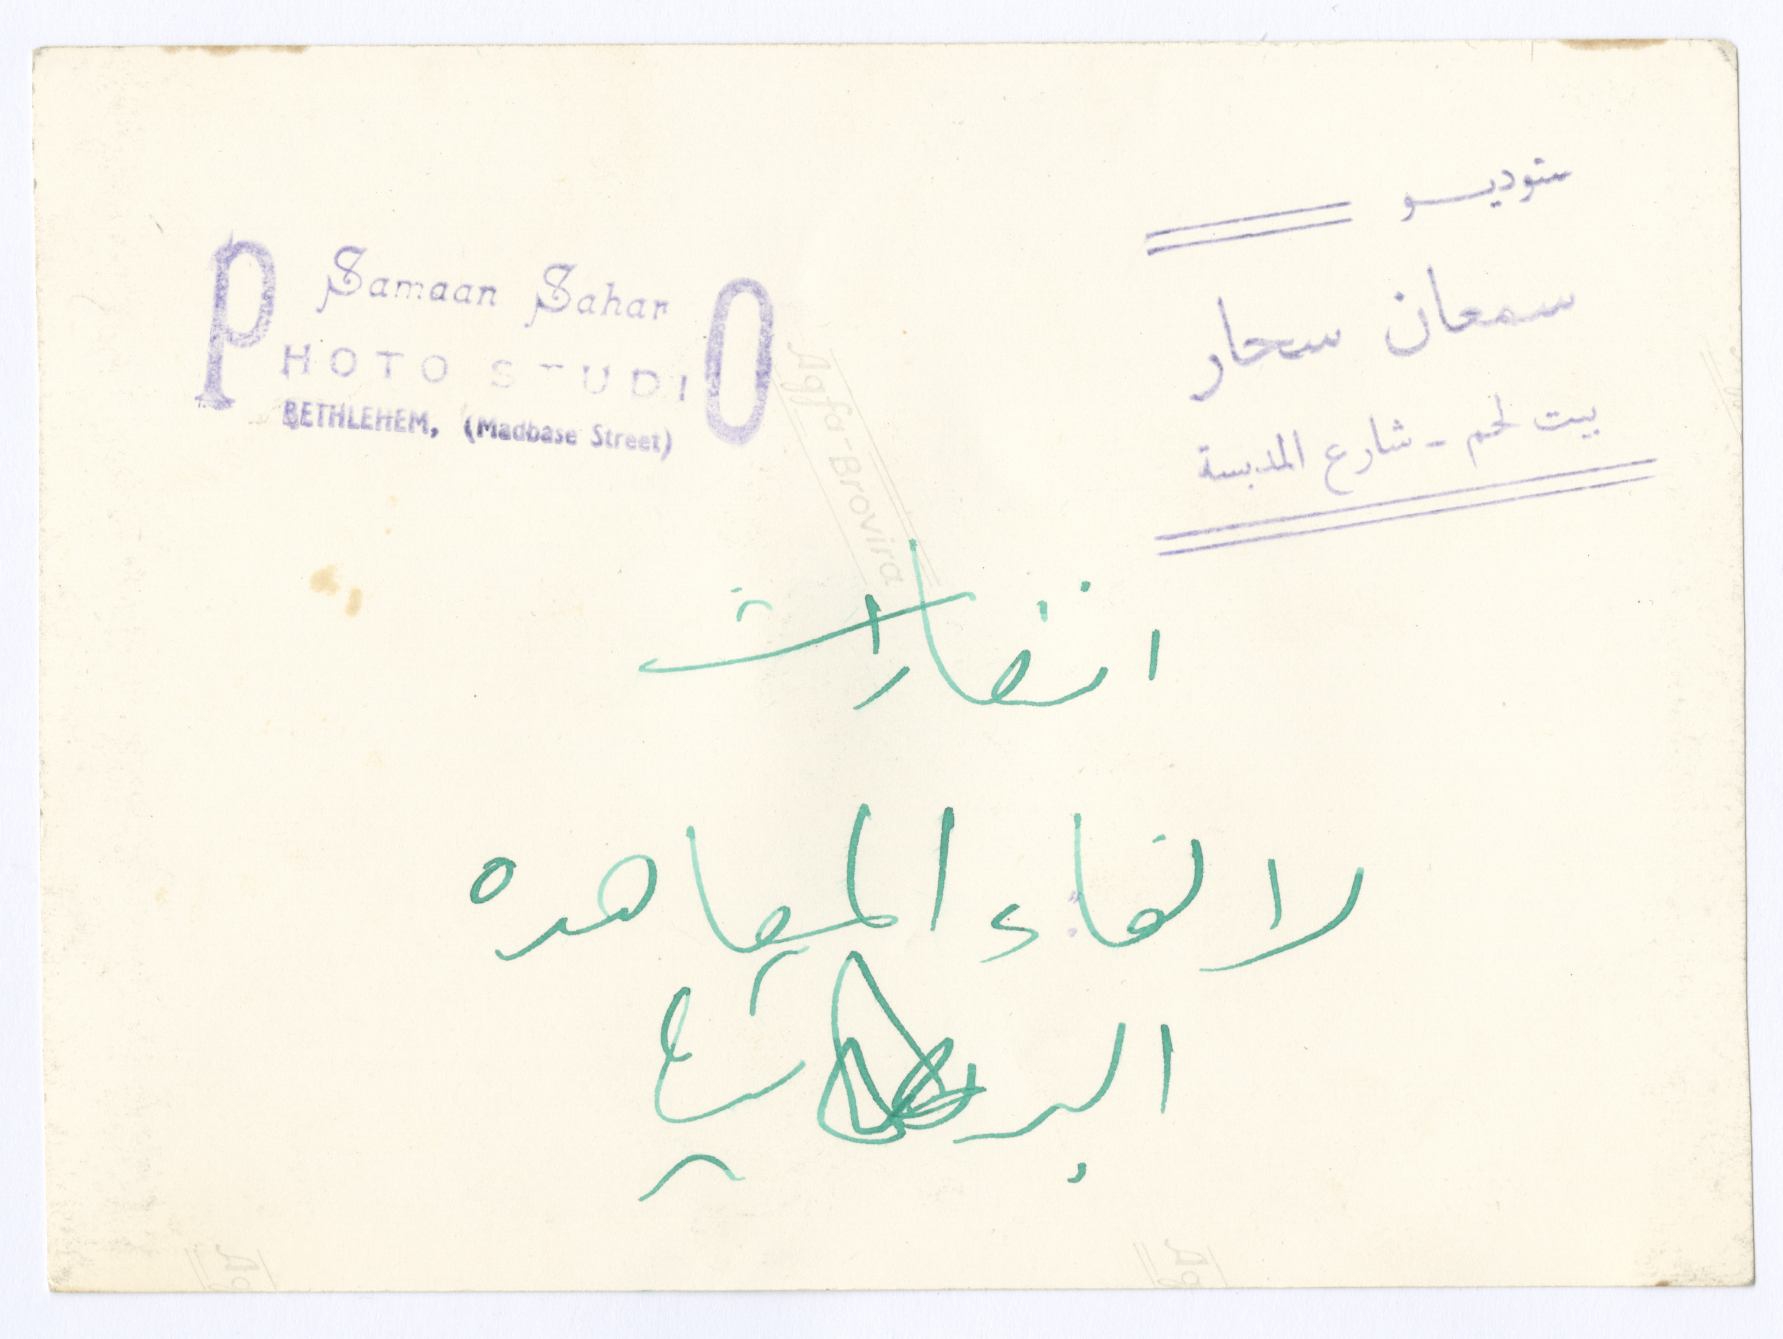 Samaan Sahar
PHOTO STUDIO
BETHLEHEM, (Madbase Street)
ستوديو
سمعان سحار
بيت لحم - شارع المدبسة
Agfa-Brovira
انتصارات
لالغاء المعاهده
البريطانية
Ag
Ag